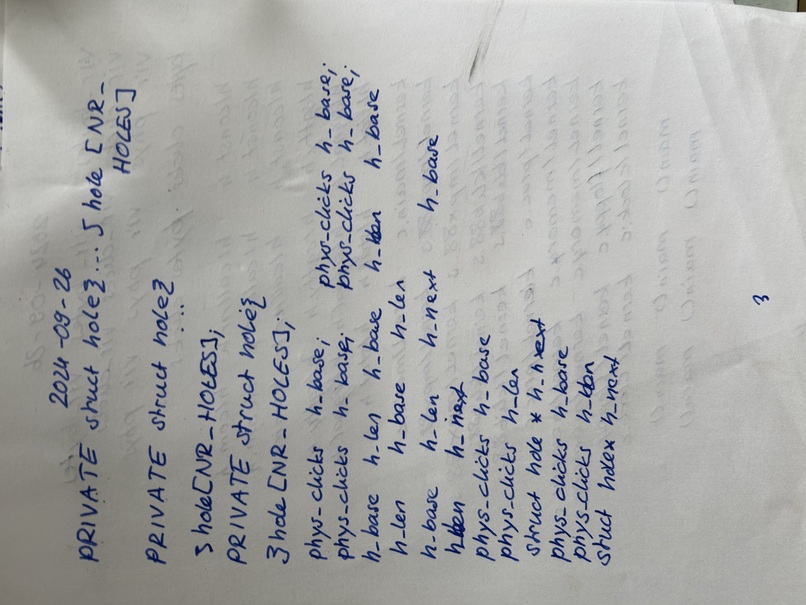 2024-09-26
PRIVATE struct hole{... } hole [NR_
HOLES]
PRIVATE struct hole{
...
} hole[NR_HOLES];
PRIVATE struct hole{
} hole[NR_HOLES];
phys_clicks h_base; phys_clicks h_base;
phys_clicks h_base; phys_clicks h_base;
h_base h_len h_base h_len h_base
h_len h_base h_len
h_base h_len h_next h_base
h_len h_next
phys_clicks h_base
phys_clicks h_len
struct hole * h_next
phys_clicks h_base
phys_clicks h_len
struct hole* h_next
3